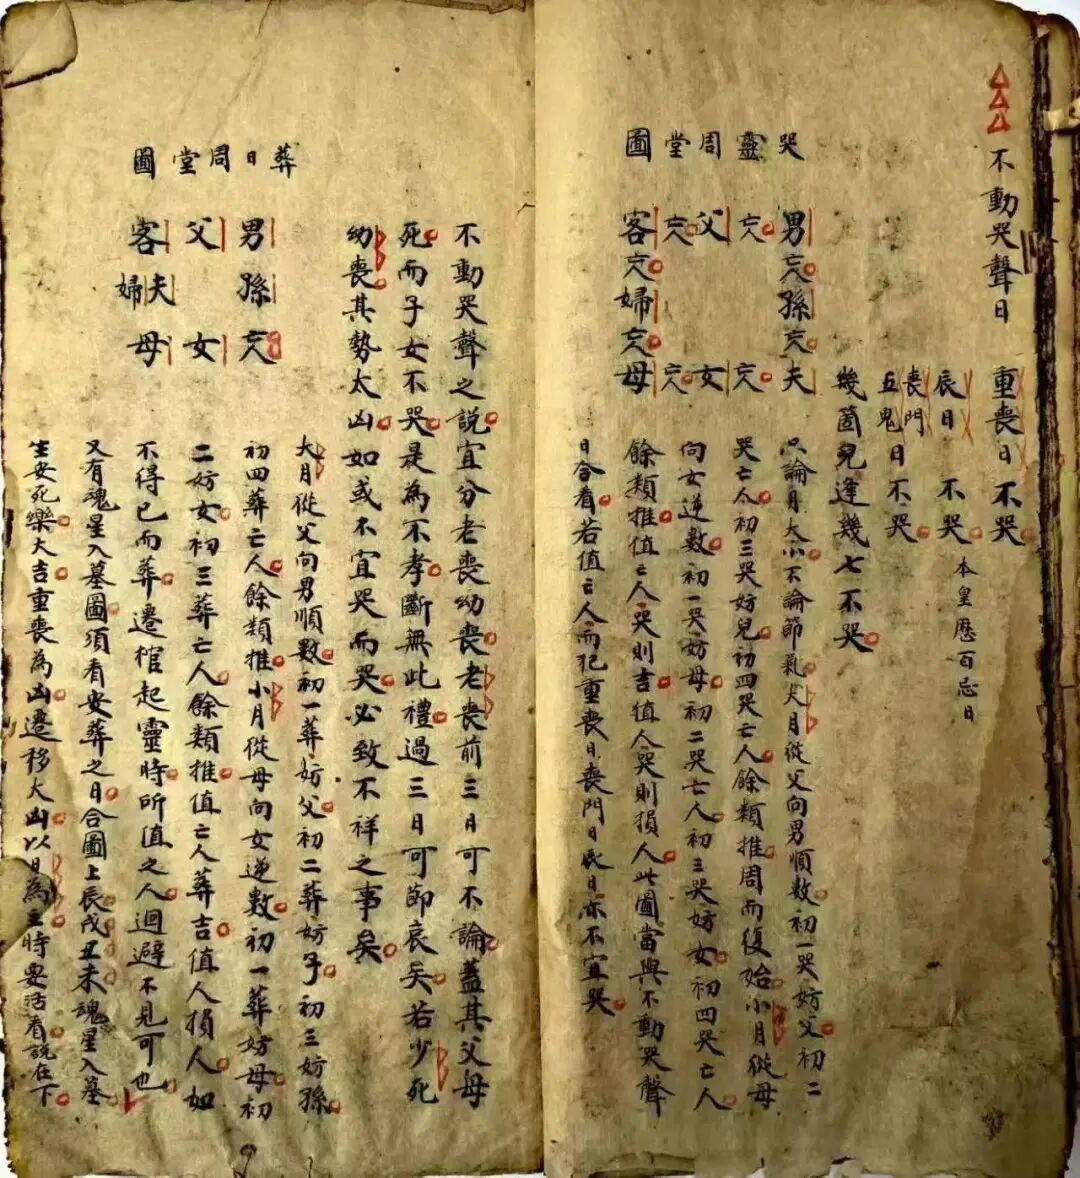 不動哭聲日
重喪日不哭
辰日不哭 本皇歷百忌日
喪門
五鬼日不哭
幾箇兒逢幾七不哭
哭靈周堂圖
男亡孫亡夫
亡 亡
父 女
亡 亡
客亡婦亡母
只論月大小不論節氣大月從父向男順數初一哭妨父初二
哭亡人初三哭妨兒初四哭亡人餘類推周而復始小月從母
向女逆數初一哭妨母初二哭亡人初三哭妨女初四哭亡人
餘類推值亡人哭則吉值人哭則損人此圖當與不動哭聲
日合看若值亡人而犯重喪日喪門日辰日亦不宜哭
不動哭聲之說宜分老喪幼喪老喪前三日可不論蓋其父母
死而子女不哭是為不孝斷無此禮過三日可節哀矣若少死
幼喪其勢太凶如或不宜哭而哭必致不祥之事矣
葬日周堂圖
男孫亡
父 女
客夫母
婦
大月從父向男順數初一葬妨父初二葬妨子初三妨孫
初四葬亡人餘類推小月從母向女逆數初一葬妨母初
二妨女初三葬亡人餘類推值亡人葬吉值人損人如
不得已而葬遷棺起靈時所值之人迴避不見可也
又有魂星入墓圖須看安葬之日合圖上辰戌丑未魂星入墓
生安死樂大吉重喪為凶遷移大凶以日為主時要活看說在下